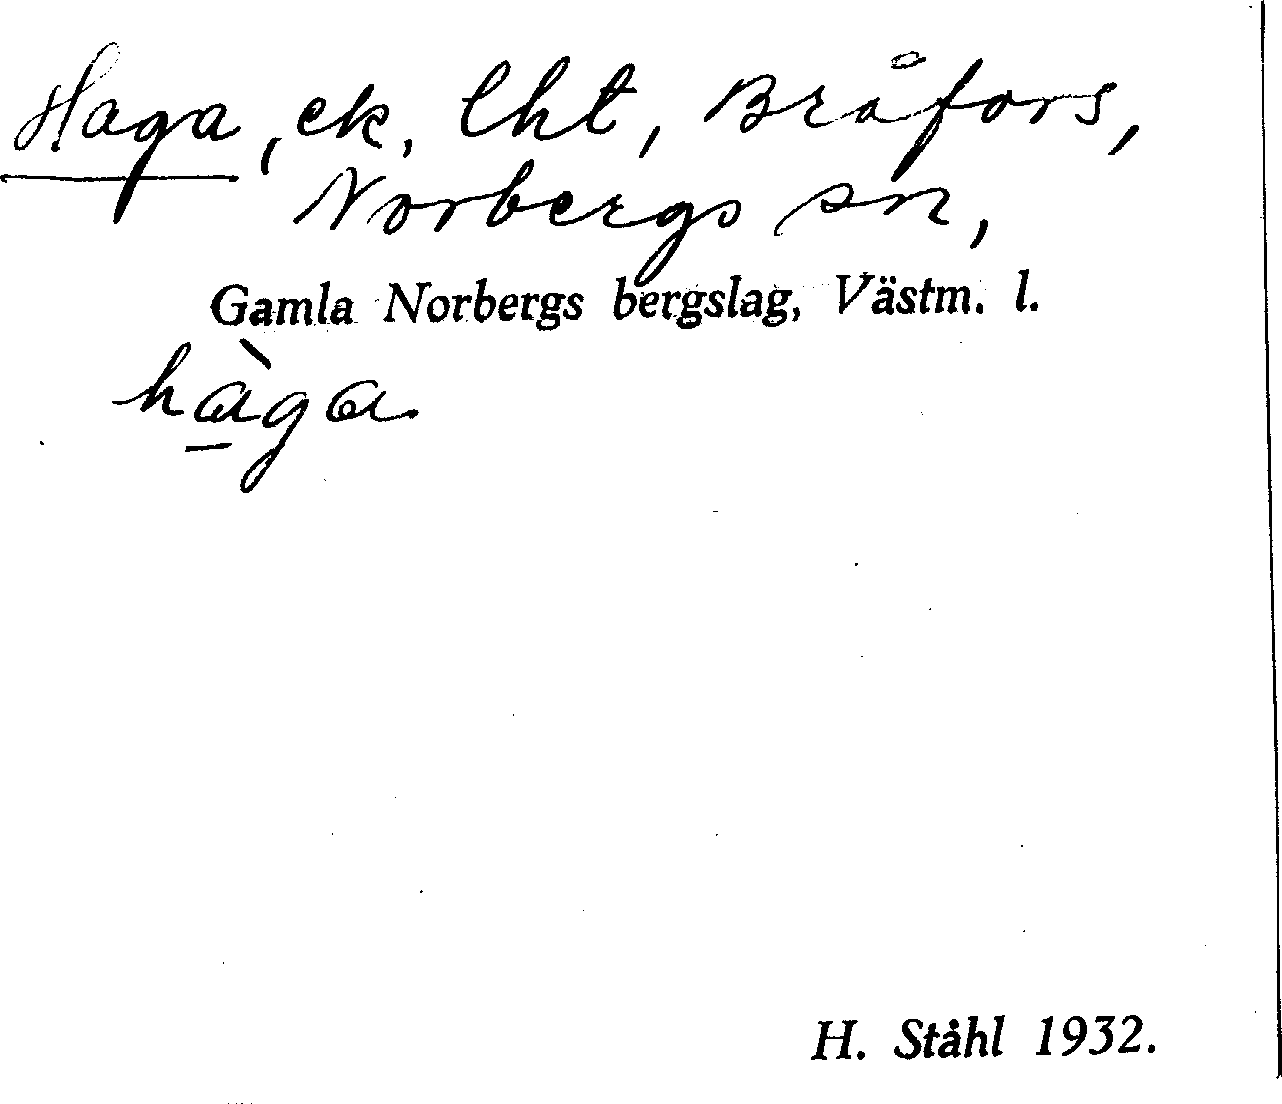 Haga, ek. lht, Bråfors,
Norbergs sn,
Gamla Norbergs bergslag, Västm. l.
hàga
H. Ståhl 1932.